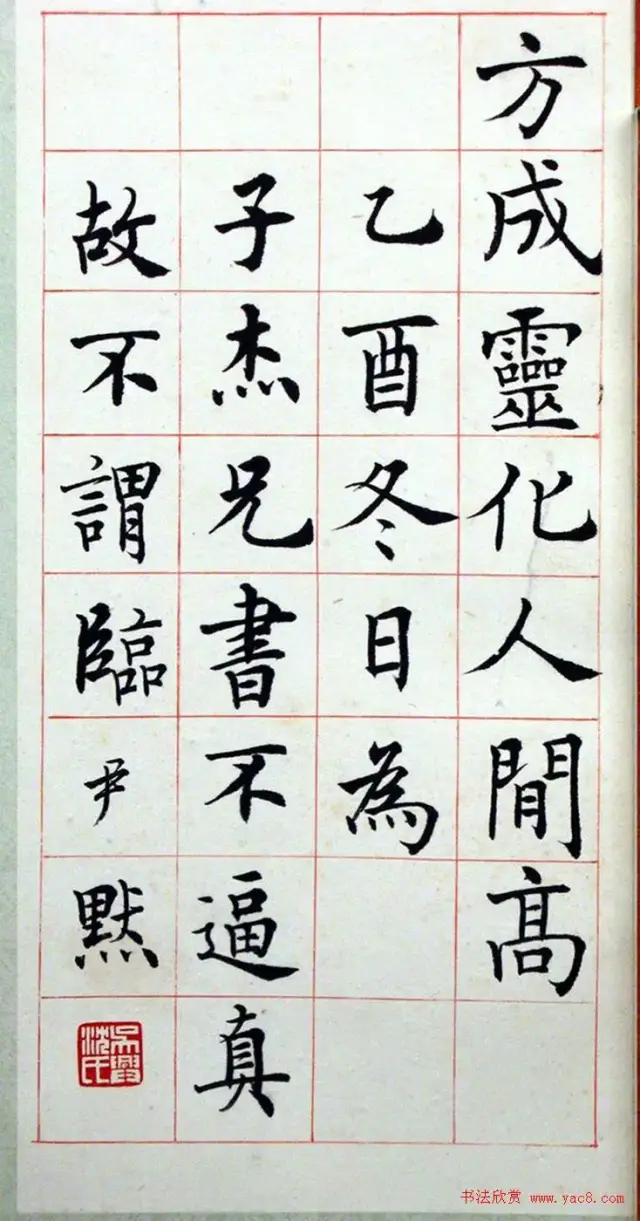 方成靈化人間高
乙酉冬日為
子杰兄書不逼真
故不謂臨尹默
吳興沈氏
书法欣赏 www.yac8.com